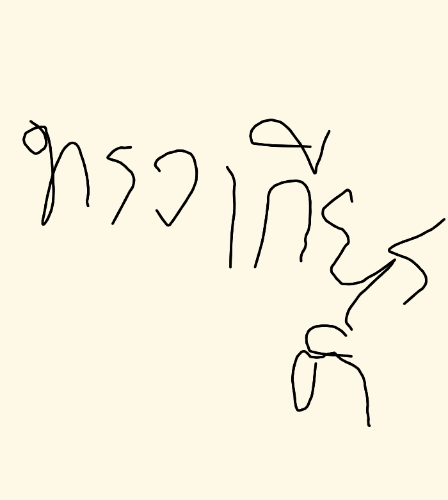 ทรงเกียร
ติ